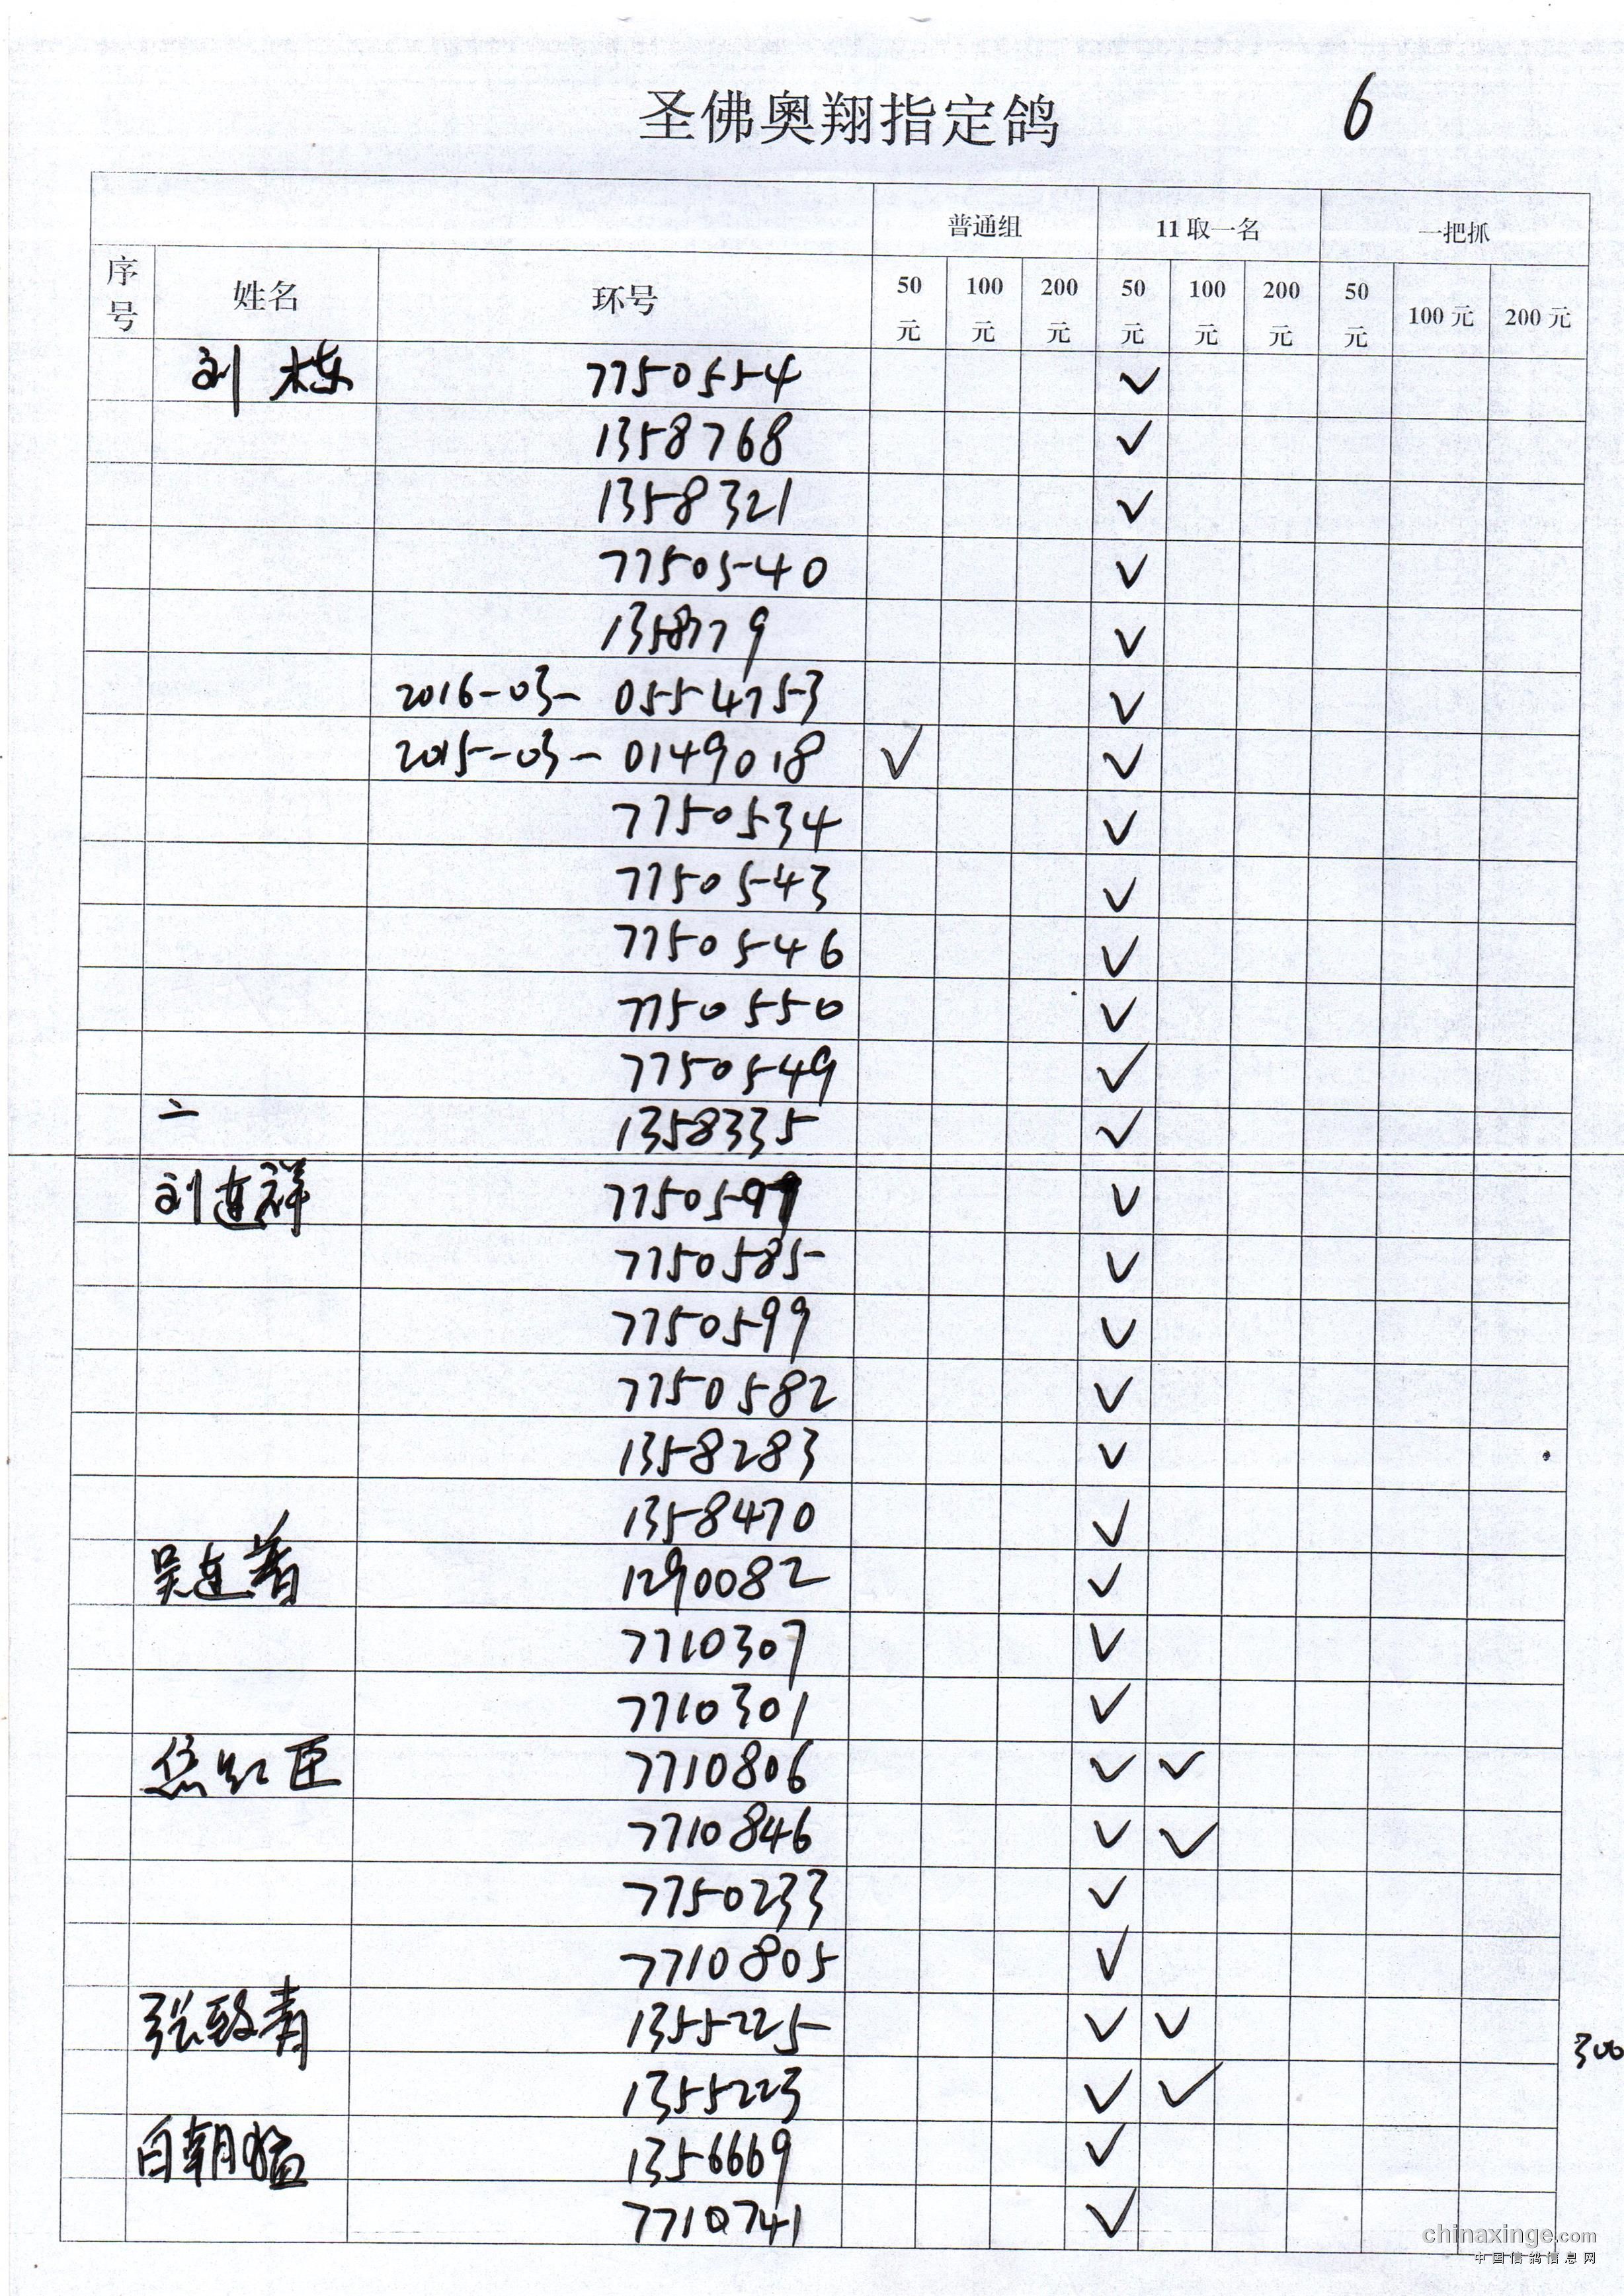 圣佛奥翔指定鸽 6
普通组 11取一名 一把抓
序号 姓名 环号 50元 100元 200元 50元 100元 200元 50元 100元 200元
刘栋 7750554 ✓
1358768 ✓
1358321 ✓
7750540 ✓
1358779 ✓
2016-03-0554753 ✓
2015-03-0149018 ✓ ✓
7750534 ✓
7750543 ✓
7750546 ✓
7750550 ✓
7750549 ✓
二 1358335 ✓
刘连祥 ✓
7750585 ✓
7750599 ✓
7750582 ✓
1358283 ✓
1358470 ✓
吴连 1290082 ✓
7710307 ✓
7710301 ✓
臣 7710806 ✓ ✓
7710846 ✓ ✓
7750233 ✓
7710805 ✓
张致青 1355225 ✓ ✓
300
1355223 ✓ ✓
白朝猛 1356669 ✓
7710741 ✓
chinaxinge.com
中国信鸽信息网